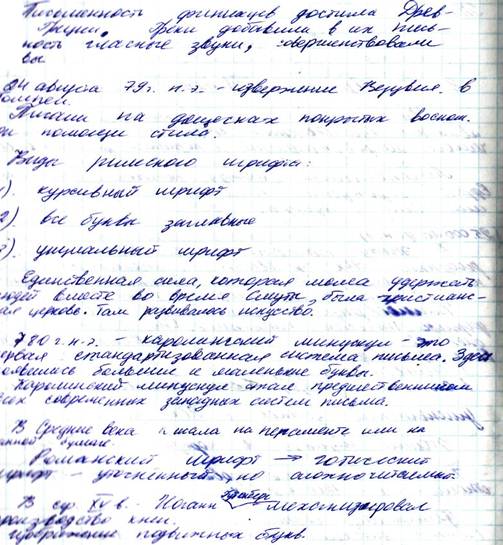 Письменность финикцев достигла Древ-
Греции. Греки добавили в их пись-
ность гласные звуки, совершенствовали
вы
24 августа 79г. н.э. - извержение Везувия. в
омпеи.
Писали на дощечках покрытых воском.
ри помощи стила.
Виды римского шрифта:
1). курсивный шрифт
2) все буквы заглавные
3). унциальный шрифт
Единственная сила, которая могла удержать
юдей вместе во время смуты, была христианс-
ая церковь. Там развивалось искусство.
780 г. н.э. - каролингский минускул - это
ервая стандартизованная система письма. Здесь
оявились большие и маленькие буквы.
Каролингский минускул стал предшественником
сех современных западных систем письма.
В Средние века писали на пергаменте или на
бумаге.
Романский шрифт → готический
шрифт - утонченный но сложночитаемый.
В сер. XV в. Иоганн механизировал
роизводство книг.
изобретение подвижных букв.